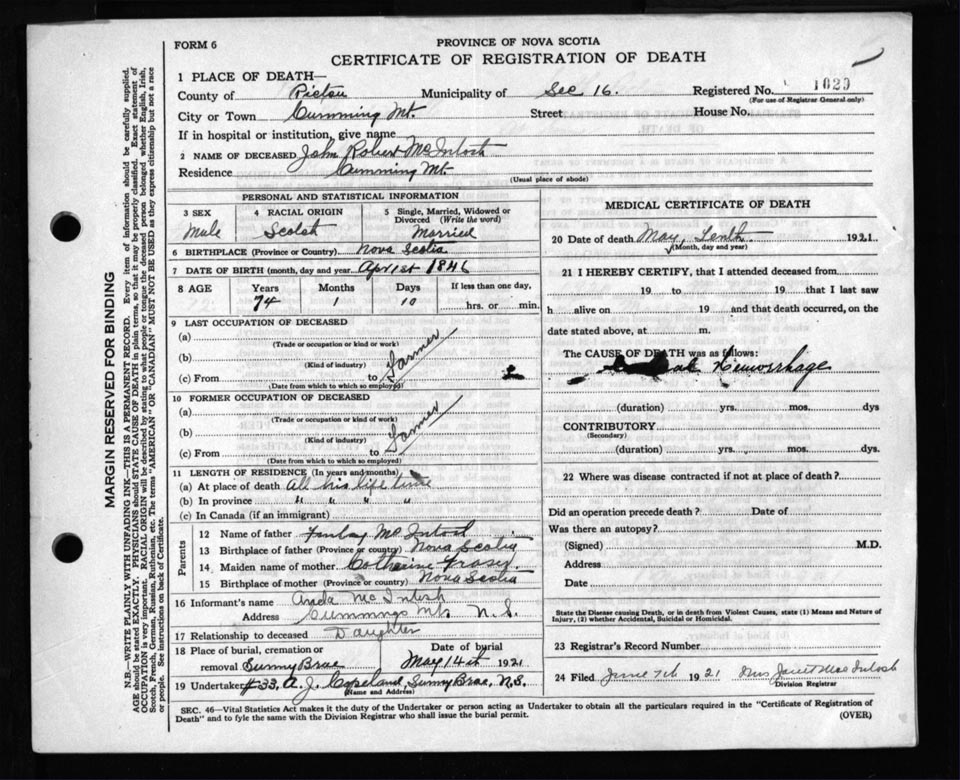 FORM 6
PROVINCE OF NOVA SCOTIA
CERTIFICATE OF REGISTRATION OF DEATH
1 PLACE OF DEATH—
County of Pictou Municipality of Sec 16. Registered No. 1029
(For use of Registrar General only)
City or Town Cumming Mt. Street House No.
If in hospital or institution, give name
2 NAME OF DECEASED John Robert McIntosh
Residence Cumming Mt.
(Usual place of abode)
PERSONAL AND STATISTICAL INFORMATION
3 SEX Male
4 RACIAL ORIGIN Scotch
5 Single, Married, Widowed or Divorced (Write the word) Married
6 BIRTHPLACE (Province or Country) Nova Scotia
7 DATE OF BIRTH (month, day and year) Apr 1st 1846
8 AGE Years 74 Months 1 Days 10 If less than one day, hrs. or min.
9 LAST OCCUPATION OF DECEASED
(a)
(Trade or occupation or kind or work)
(b)
(Kind of industry)
(c) From to Farmer
(Date from which to which so employed)
10 FORMER OCCUPATION OF DECEASED
(a)
(Trade or occupation or kind of work)
(b)
(Kind of industry)
(c) From to Farmer
(Date from which to which so employed)
11 LENGTH OF RESIDENCE (In years and months)
(a) At place of death All his life time
(b) In province " " " "
(c) In Canada (if an immigrant)
Parents
12 Name of father Finlay McIntosh
13 Birthplace of father (Province or country) Nova Scotia
14 Maiden name of mother Catherine Fraser
15 Birthplace of mother (Province or country) Nova Scotia
16 Informant's name McIntosh
Address Cummings Mt. N.S.
17 Relationship to deceased Daughter
18 Place of burial, cremation or removal Sunny Brae
Date of burial May 14th 1921
19 Undertaker #33, A. J. Copeland, Sunny Brae, N.S.
(Name and Address)
MEDICAL CERTIFICATE OF DEATH
20 Date of death May, Tenth 1921.
(Month, day and year)
21 I HEREBY CERTIFY, that I attended deceased from
19 to 19 that I last saw
h alive on 19 and that death occurred, on the
date stated above, at m.
The CAUSE OF DEATH was as follows:
Hemorrhage
(duration) yrs. mos. dys
CONTRIBUTORY
(Secondary)
(duration) yrs. mos. dys
22 Where was disease contracted if not at place of death?
Did an operation precede death? Date of
Was there an autopsy?
(Signed) M.D.
Address
Date
State the Disease causing Death, or in death from Violent Causes, state (1) Means and Nature of Injury, (2) whether Accidental, Suicidal or Homicidal.
23 Registrar's Record Number
24 Filed June 7th 1921 Mrs Janet MacIntosh
Division Registrar
SEC. 46—Vital Statistics Act makes it the duty of the Undertaker or person acting as Undertaker to obtain all the particulars required in the "Certificate of Registration of
Death" and to fyle the same with the Division Registrar who shall issue the burial permit.
(OVER)
MARGIN RESERVED FOR BINDING
N.B.—WRITE PLAINLY WITH UNFADING INK—THIS IS A PERMANENT RECORD. Every item of information should be carefully supplied.
AGE should be stated EXACTLY. PHYSICIANS should STATE CAUSE OF DEATH in plain terms, so that it may be properly classified. Exact statement of
OCCUPATION is very important. RACIAL ORIGIN will be described by stating to what people or tongue the deceased person belonged whether English, Irish,
Scotch, French, German, Russian, Ruthenian, etc. The terms "AMERICAN" OR "CANADIAN" MUST NOT BE USED as they express citizenship but not a race
or people. See instructions on back of Certificate.